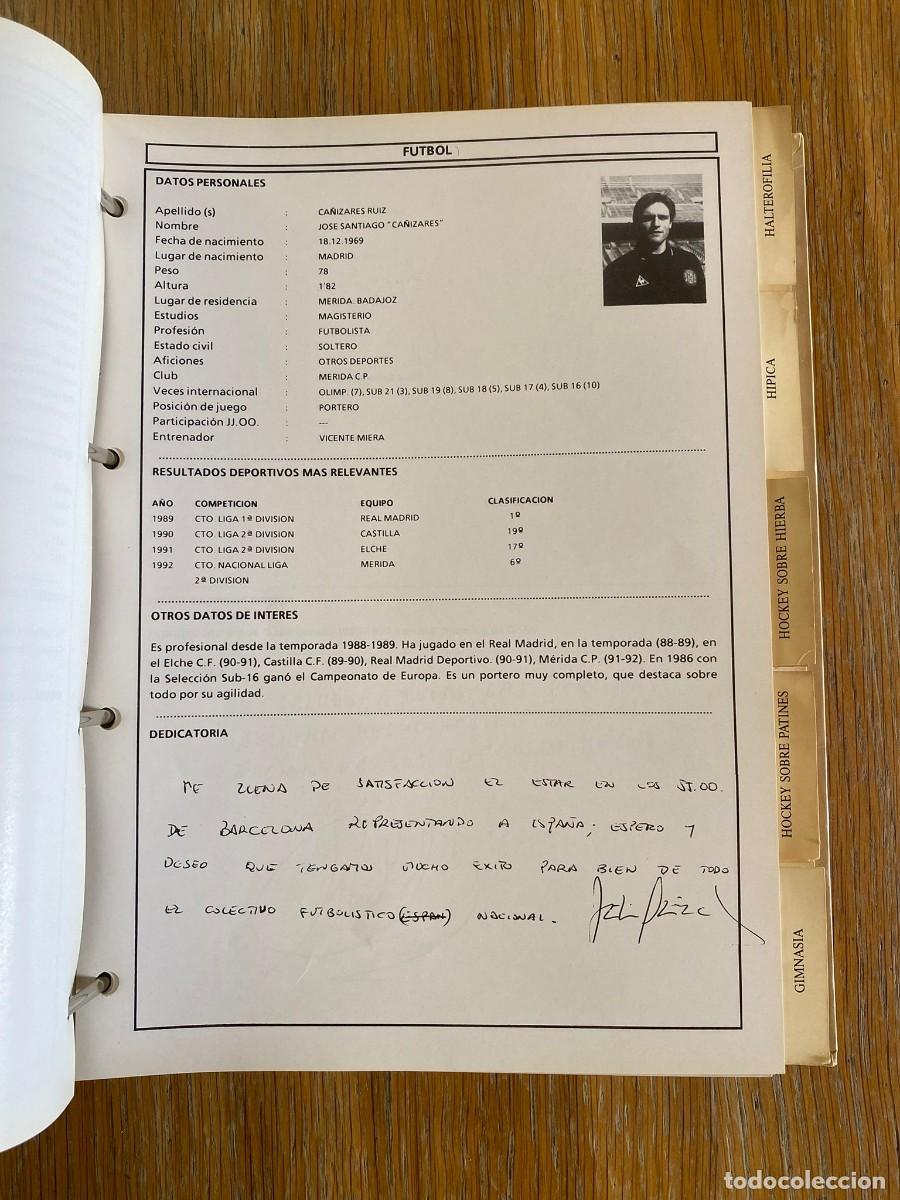 FUTBOL
DATOS PERSONALES
Apellido (s) : CAÑIZARES RUIZ
Nombre : JOSE SANTIAGO "CAÑIZARES"
Fecha de nacimiento : 18.12.1969
Lugar de nacimiento : MADRID
Peso : 78
Altura : 1'82
Lugar de residencia : MERIDA. BADAJOZ
Estudios : MAGISTERIO
Profesión : FUTBOLISTA
Estado civil : SOLTERO
Aficiones : OTROS DEPORTES
Club : MERIDA C.P.
Veces internacional : OLIMP. (7), SUB 21 (3), SUB 19 (8), SUB 18 (5), SUB 17 (4), SUB 16 (10)
Posición de juego : PORTERO
Participación JJ.OO. : ---
Entrenador : VICENTE MIERA
RESULTADOS DEPORTIVOS MAS RELEVANTES
AÑO COMPETICION EQUIPO CLASIFICACION
1989 CTO. LIGA 1ª DIVISION REAL MADRID 1º
1990 CTO. LIGA 2ª DIVISION CASTILLA 19º
1991 CTO. LIGA 2ª DIVISION ELCHE 17º
1992 CTO. NACIONAL LIGA MERIDA 6º
2ª DIVISION
OTROS DATOS DE INTERES
Es profesional desde la temporada 1988-1989. Ha jugado en el Real Madrid, en la temporada (88-89), en
el Elche C.F. (90-91), Castilla C.F. (89-90), Real Madrid Deportivo. (90-91), Mérida C.P. (91-92). En 1986 con
la Selección Sub-16 ganó el Campeonato de Europa. Es un portero muy completo, que destaca sobre
todo por su agilidad.
DEDICATORIA
ME LLENA DE SATISFACCION EL ESTAR EN LOS JJ.OO.
DE BARCELONA REPRESENTANDO A ESPAÑA; ESPERO Y
DESEO QUE TENGAMOS MUCHO EXITO PARA BIEN DE TODO
EL COLECTIVO FUTBOLISTICO (ESPAÑ) NACIONAL.
HALTEROFILIA
HIPICA
HOCKEY SOBRE HIERBA
HOCKEY SOBRE PATINES
GIMNASIA
todocoleccion